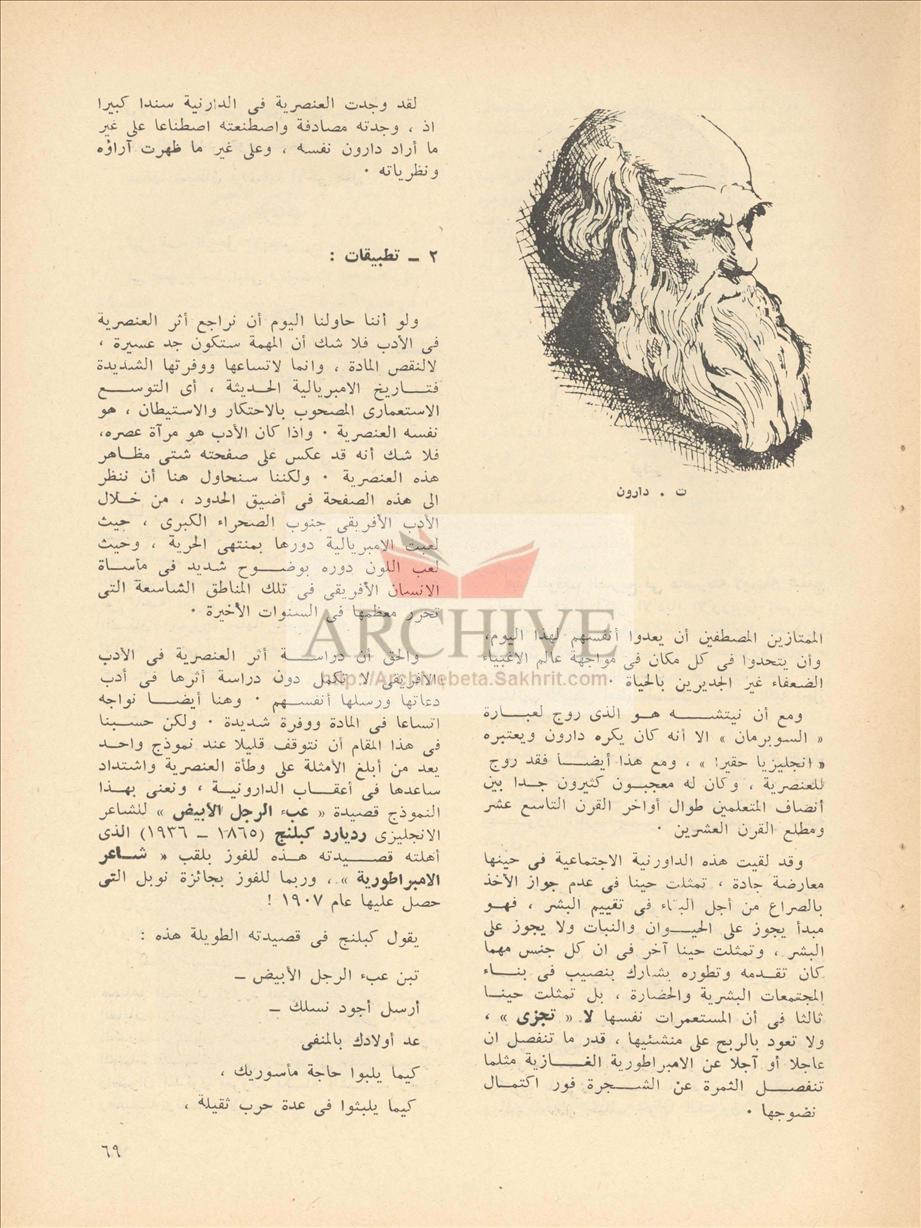 ت . دارون
الممتازين المصطفين أن يعدوا أنفسهم لهذا اليوم،
وأن يتحدوا فى كل مكان فى مواجهة عالم الأغبياء
الضعفاء غير الجديرين بالحياة ٠
ومع أن نيتشه هو الذى روج لعبارة
« السوبرمان » الا أنه كان يكره دارون ويعتبره
« انجليزيا حقيرا » ، ومع هذا أيضا فقد روج
للعنصرية ، وكان له معجبون كثيرون جدا بين
أنصاف المتعلمين طوال أواخر القرن التاسع عشر
ومطلع القرن العشرين ٠
وقد لقيت هذه الداورنية الاجتماعية فى حينها
معارضة جادة ، تمثلت حينا فى عدم جواز الأخذ
بالصراع من أجل البقاء فى تقييم البشر ، فهو
مبدأ يجوز على الحيوان والنبات ولا يجوز على
البشر ، وتمثلت حينا آخر فى ان كل جنس مهما
كان تقدمه وتطوره يشارك بنصيب فى بناء
المجتمعات البشرية والحضارة ، بل تمثلت حينا
ثالثا فى أن المستعمرات نفسها لا « تجزى » ،
ولا تعود بالربح على منشئيها ، قدر ما تنفصل ان
عاجلا أو آجلا عن الامبراطورية الغازية مثلما
تنفصل الثمرة عن الشجرة فور اكتمال
نضوجها ٠
لقد وجدت العنصرية فى الدارنية سندا كبيرا
اذ ، وجدته مصادفة واصطنعته اصطناعا على غير
ما أراد دارون نفسه ، وعلى غير ما ظهرت آراؤه
ونظرياته ٠
٢ ــ تطبيقات :
ولو أننا حاولنا اليوم أن نراجع أثر العنصرية
فى الأدب فلا شك أن المهمة ستكون جد عسيرة ،
لالنقص المادة ، وانما لاتساعها ووفرتها الشديدة
فتاريخ الامبريالية الحديثة ، أى التوسع
الاستعمارى المصحوب بالاحتكار والاستيطان ، هو
نفسه العنصرية ٠ واذا كان الأدب هو مرآة عصره،
فلا شك أنه قد عكس على صفحته شتى مظاهر
هذه العنصرية ٠ ولكننا سنحاول هنا أن ننظر
الى هذه الصفحة فى أضيق الحدود ، من خلال
الأدب الأفريقى جنوب الصحراء الكبرى ، حيث
لعبت الامبريالية دورها بمنتهى الحرية ، وحيث
لعب اللون دوره بوضوح شديد فى مأساة
الانسان الأفريقى فى تلك المناطق الشاسعة التى
تحرر معظمها فى السنوات الأخيرة ٠
والحق أن دراسة أثر العنصرية فى الأدب
الأفريقى لا تكمل دون دراسة أثرها فى أدب
دعاتها ورسلها أنفسهم ٠ وهنا أيضا نواجه
اتساعا فى المادة ووفرة شديدة ٠ ولكن حسبنا
فى هذا المقام أن نتوقف قليلا عند نموذج واحد
يعد من أبلغ الأمثلة على وطأة العنصرية واشتداد
ساعدها فى أعقاب الدارونية ، ونعنى بهذا
النموذج قصيدة « عبء الرجل الأبيض » للشاعر
الانجليزى رديارد كبلنج (١٨٦٥ ــ ١٩٣٦) الذى
أهلته قصيدته هذه للفوز بلقب « شاعر
الامبراطورية » ، وربما للفوز بجائزة نوبل التى
حصل عليها عام ١٩٠٧ !
يقول كبلنج فى قصيدته الطويلة هذه :
تبن عبء الرجل الأبيض ــ
أرسل أجود نسلك ــ
عد أولادك بالمنفى
كيما يلبوا حاجة مأسوريك ،
كيما يلبثوا فى عدة حرب ثقيلة ،
٦٩
ARCHIVE
http://Archivebeta.Sakhrit.com